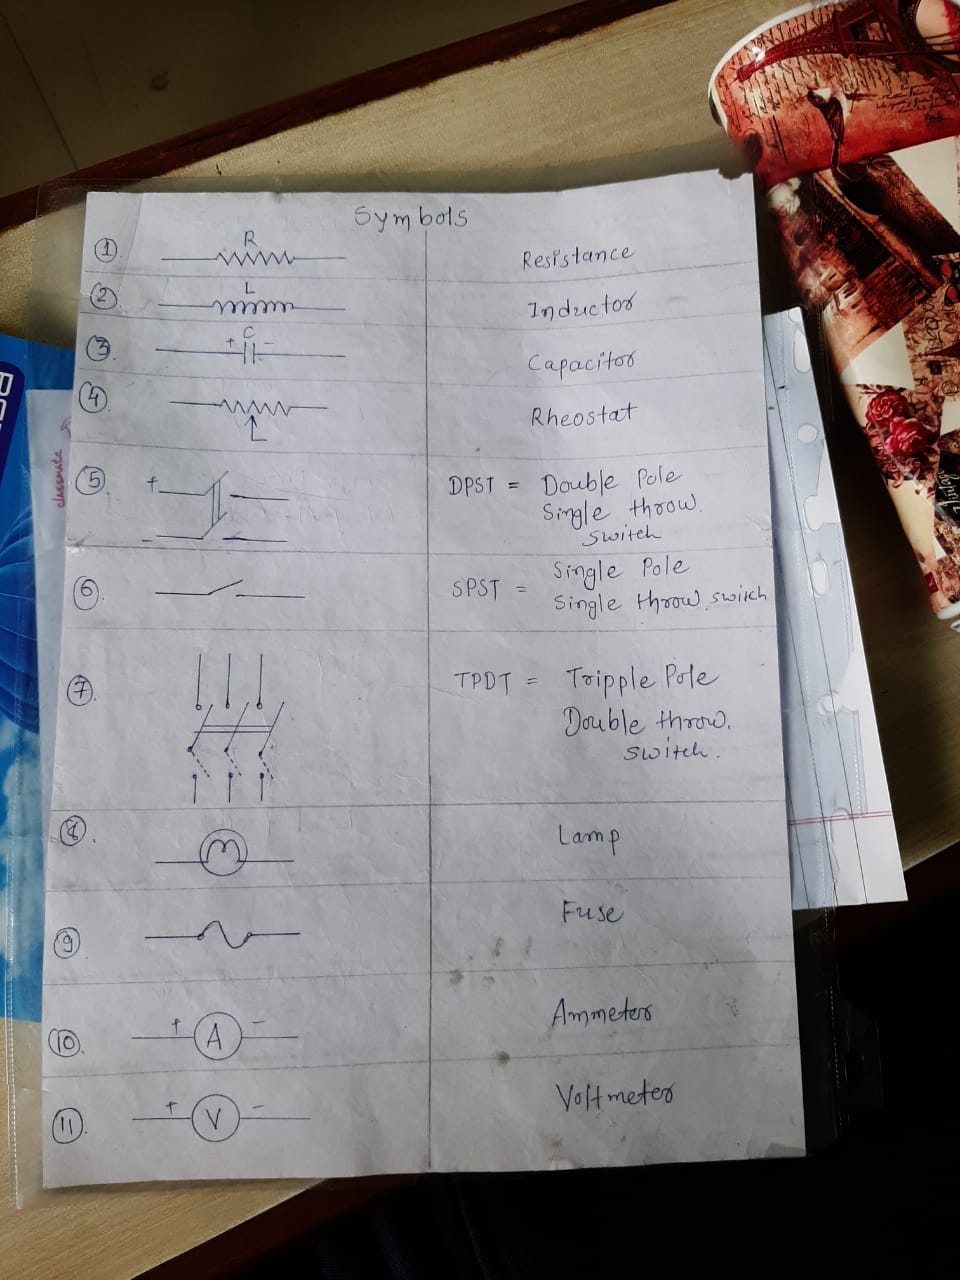 Symbols
1. R Resistance
2. L Inductor
3. + C - Capacitor
4. Rheostat
5. + - DPST = Double Pole
Single throw.
switch
6. SPST = Single Pole
Single throw switch
7. TPDT = Tripple Pole
Double throw.
switch.
8. Lamp
9. Fuse
10. + A - Ammeter
11. + V - Voltmeter
classmate